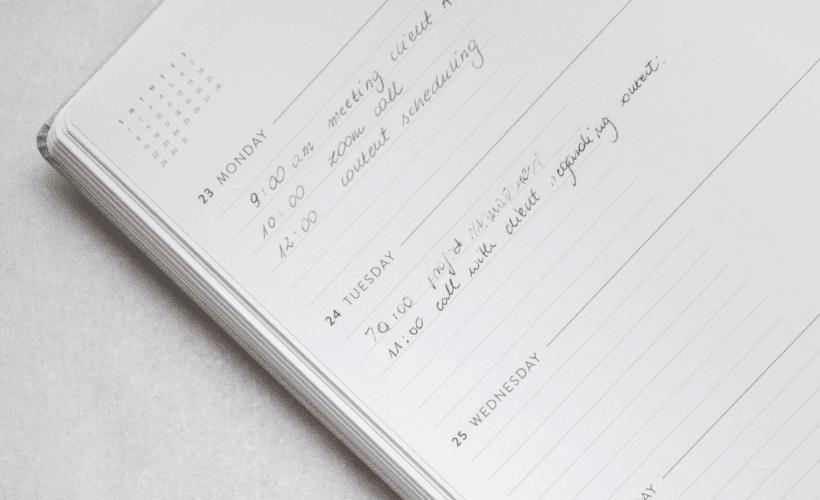 23 MONDAY
9:00 am meeting client A
10:00 zoom call
12:00 content scheduling
24 TUESDAY
10:00 project
11:00 call with client regarding
25 WEDNESDAY
DAY